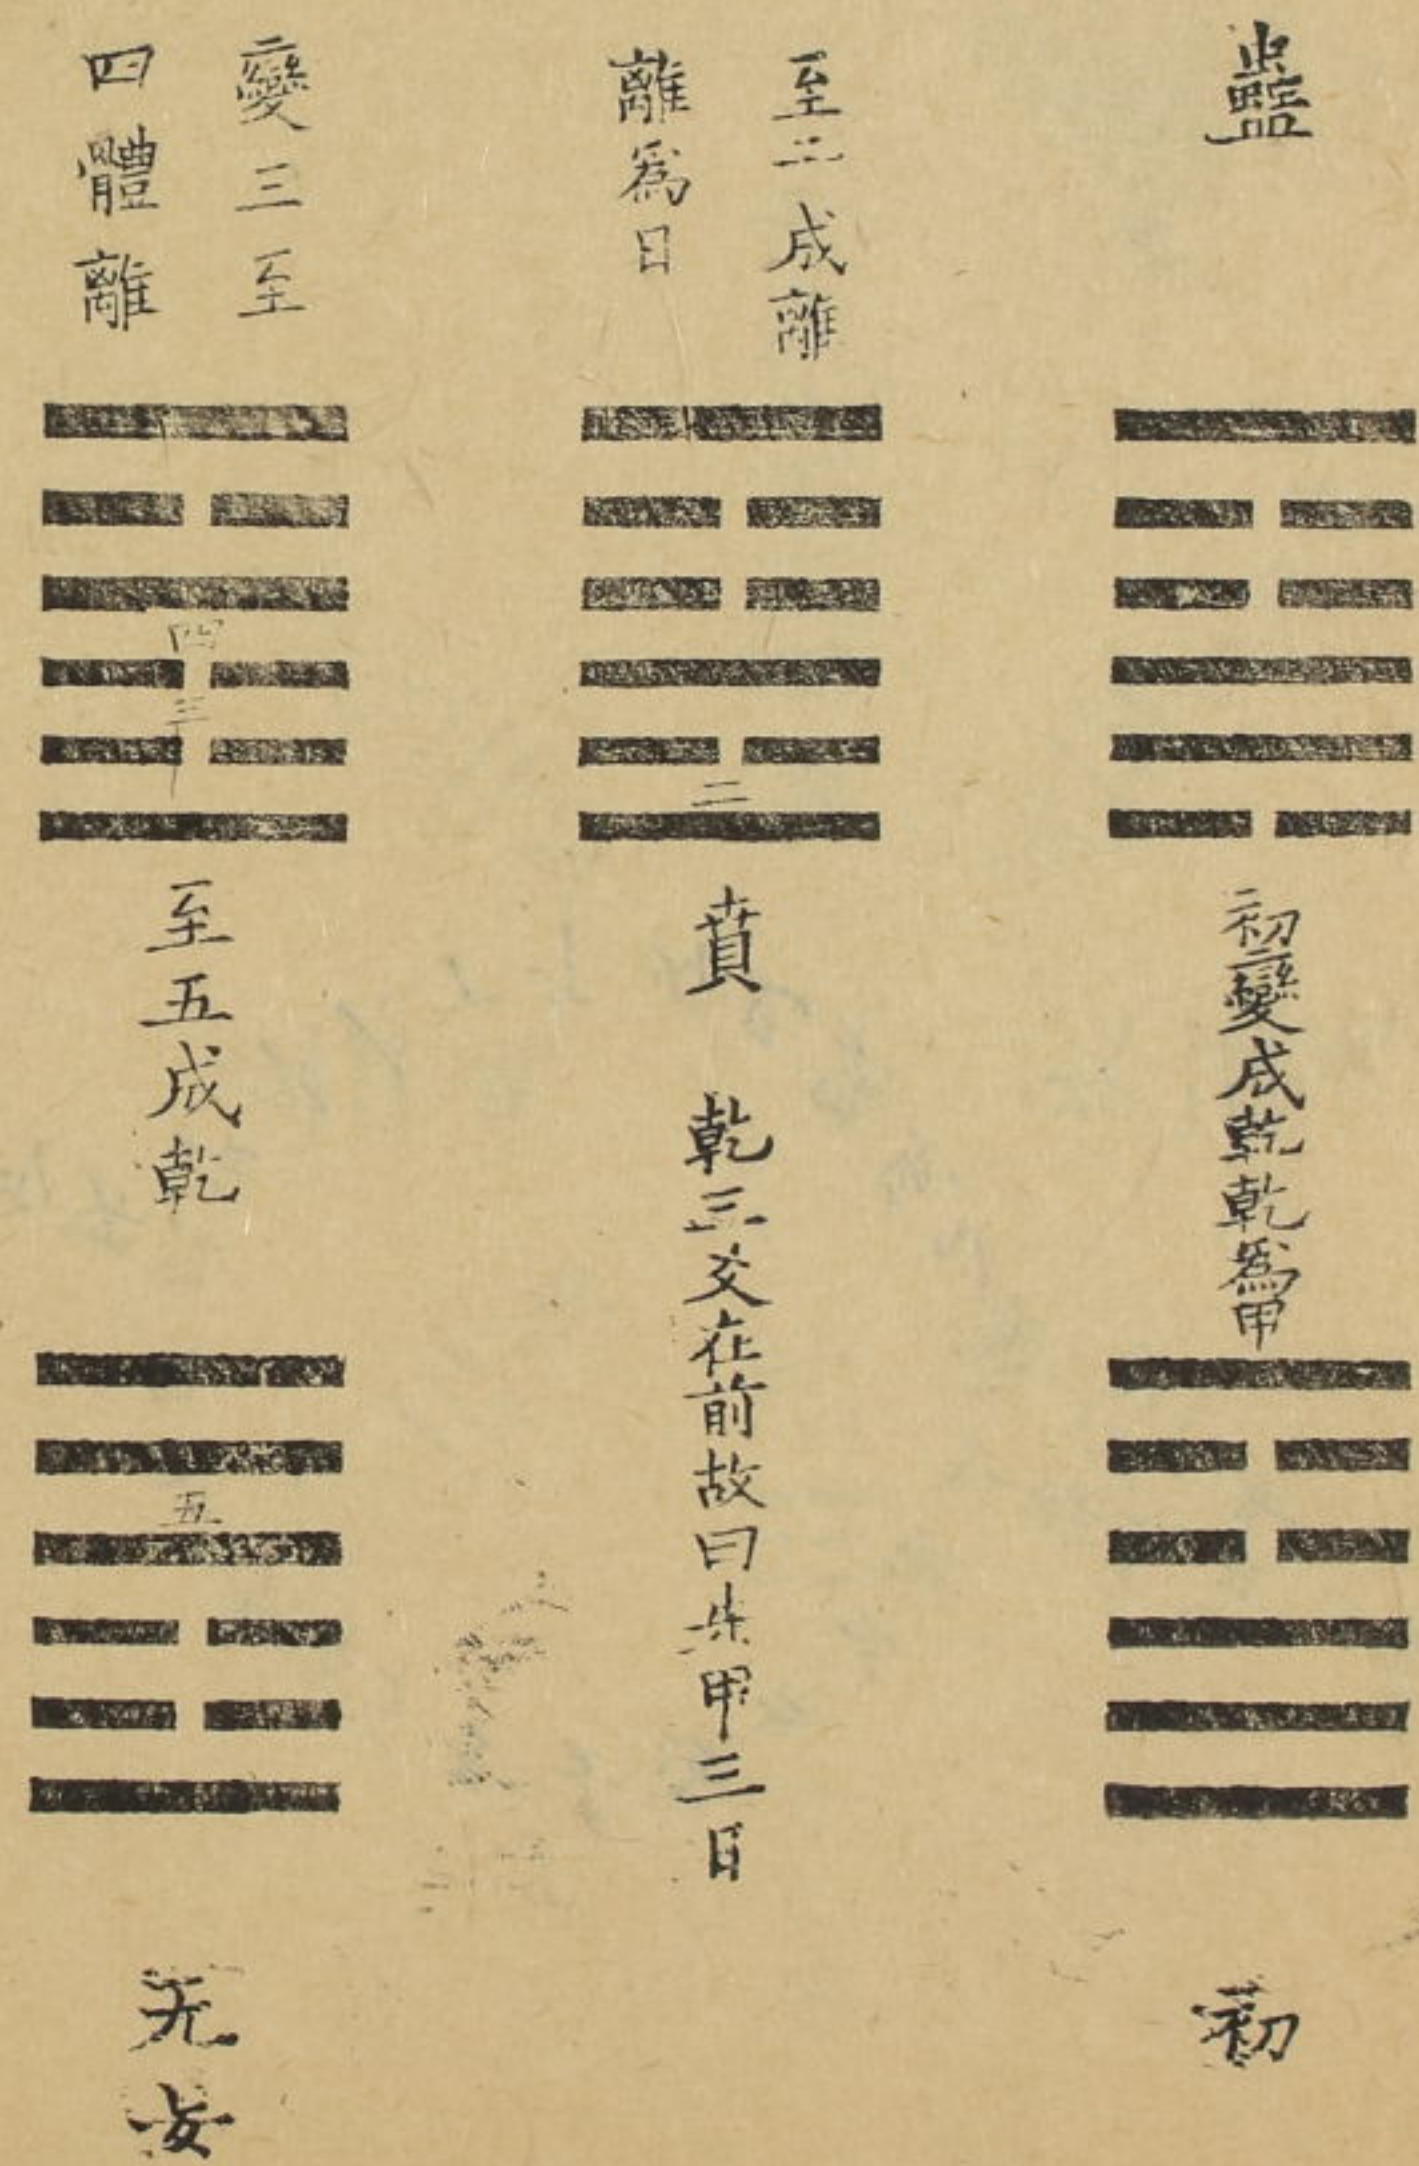 蠱
初變成乾乾爲甲
初
至二成離
離爲日
二
賁
乾三爻在前故曰先甲三日
變三至
四體離
四
三
至五成乾
五
无妄